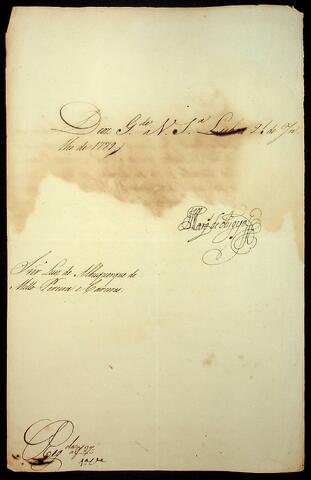 Deos G.de a V. S.a Lisboa 21 de Ju
lho de 1779
Marq. de Angeja
Snor Luiz de Albuquerque de
Mello Pereira e Caceres.